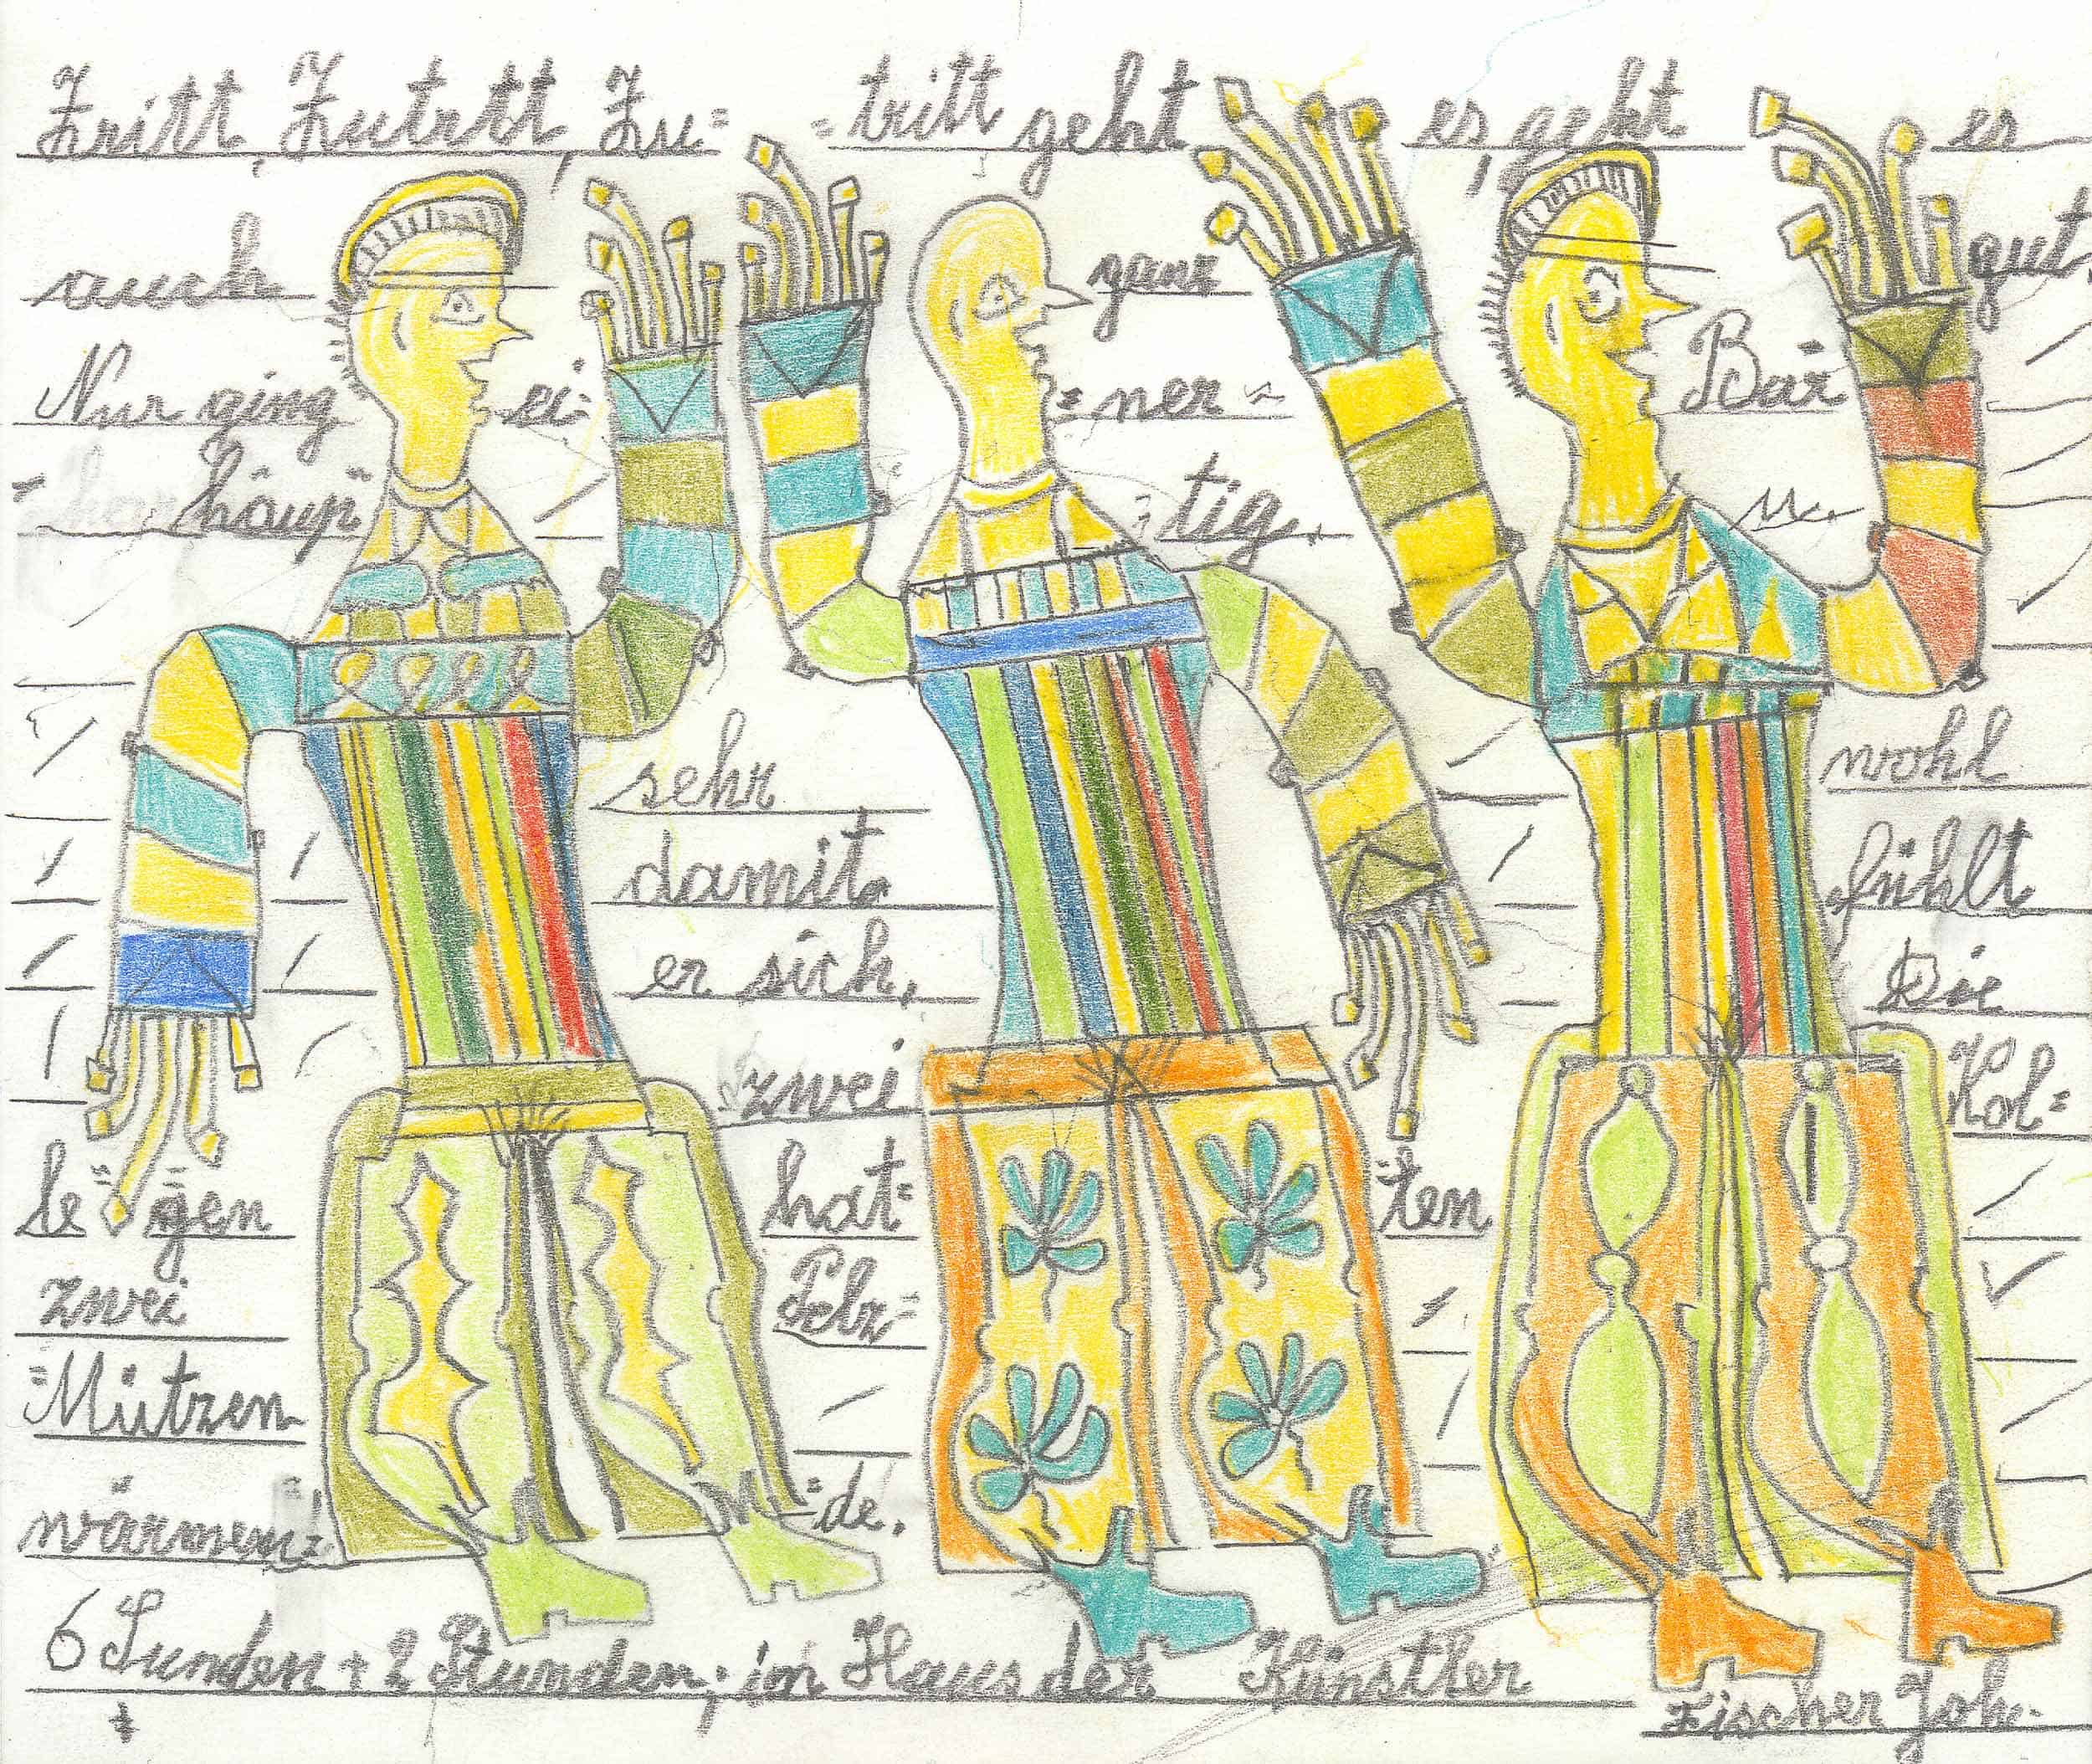 Zritt, Zutrtt, Zu= =tritt geht es, geht es
auch ganz gut.
Nur ging ei= =ner Bar
häup =tig.
sehr wohl
damit fühlt
er sich, Die
zwei Kol=
le=gen hat= ten
zwei Pelz=
=Mützen
wärmen= =de.
6 Sunden + 2 Stunden; im Haus der Künstler
Fischer Joh.